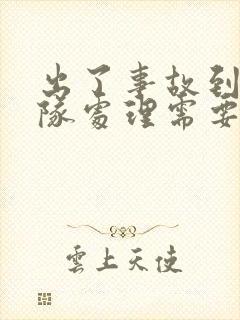 出了事故到
隊處理需要
雲上天使